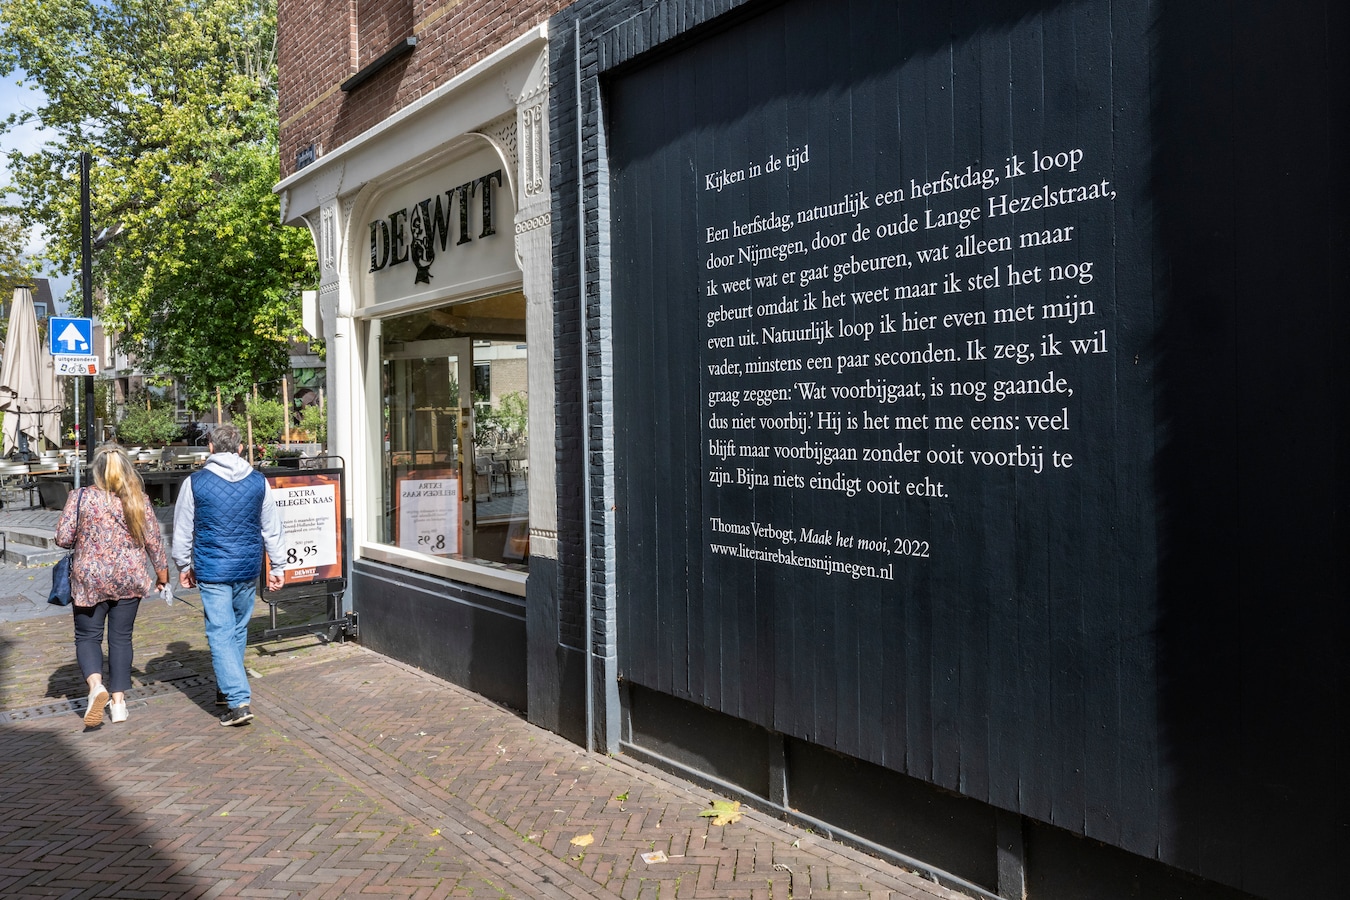 DE WIT
uitgezonderd
EXTRA
BELEGEN KAAS
500 gram
8,95
DE WIT
EXTRA
BELEGEN KAAS
8,95
Kijken in de tijd
Een herfstdag, natuurlijk een herfstdag, ik loop
door Nijmegen, door de oude Lange Hezelstraat,
ik weet wat er gaat gebeuren, wat alleen maar
gebeurt omdat ik het weet maar ik stel het nog
even uit. Natuurlijk loop ik hier even met mijn
vader, minstens een paar seconden. Ik zeg, ik wil
graag zeggen: ‘Wat voorbijgaat, is nog gaande,
dus niet voorbij.’ Hij is het met me eens: veel
blijft maar voorbijgaan zonder ooit voorbij te
zijn. Bijna niets eindigt ooit echt.
Thomas Verbogt, Maak het mooi, 2022
www.literairebakensnijmegen.nl